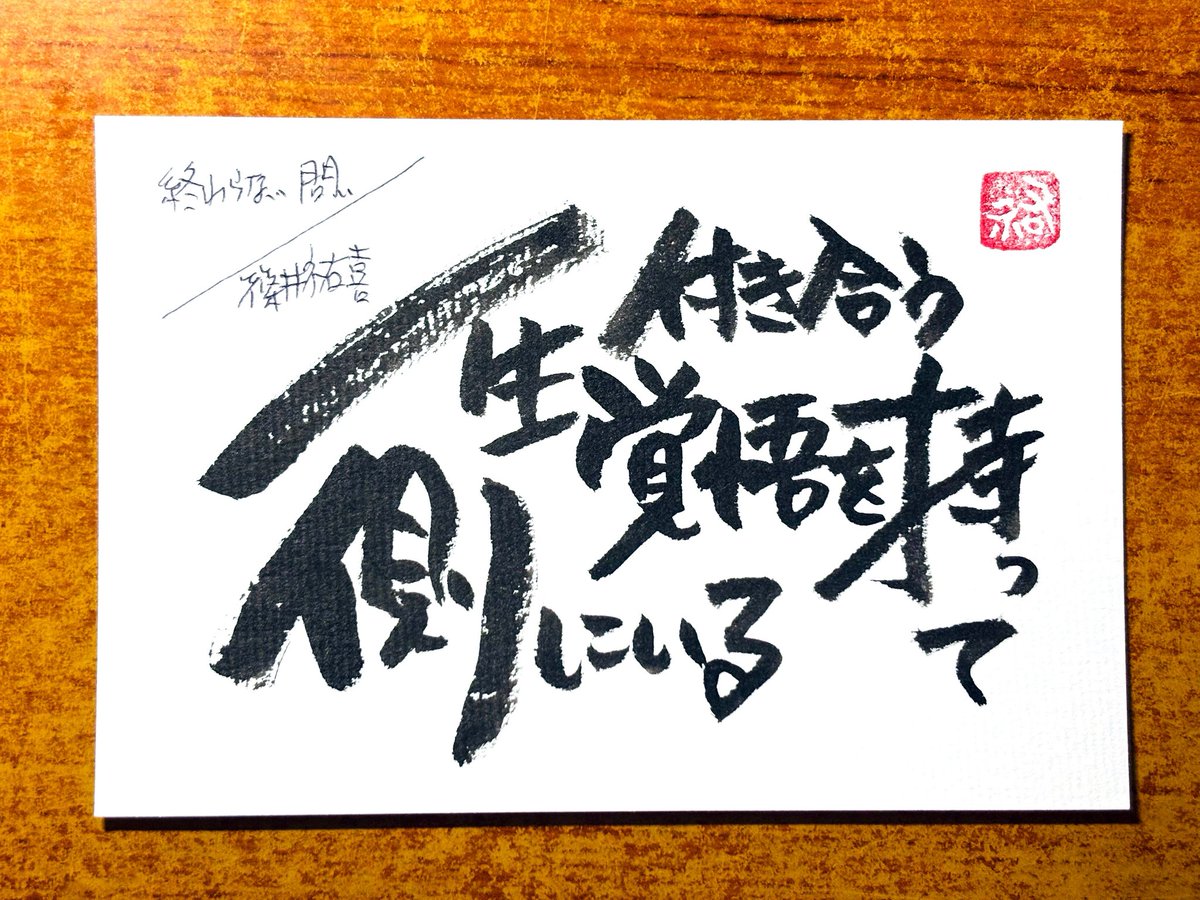 終わらない問い
/
篠井祐喜
一生付き合う
覚悟を持って
側にいる